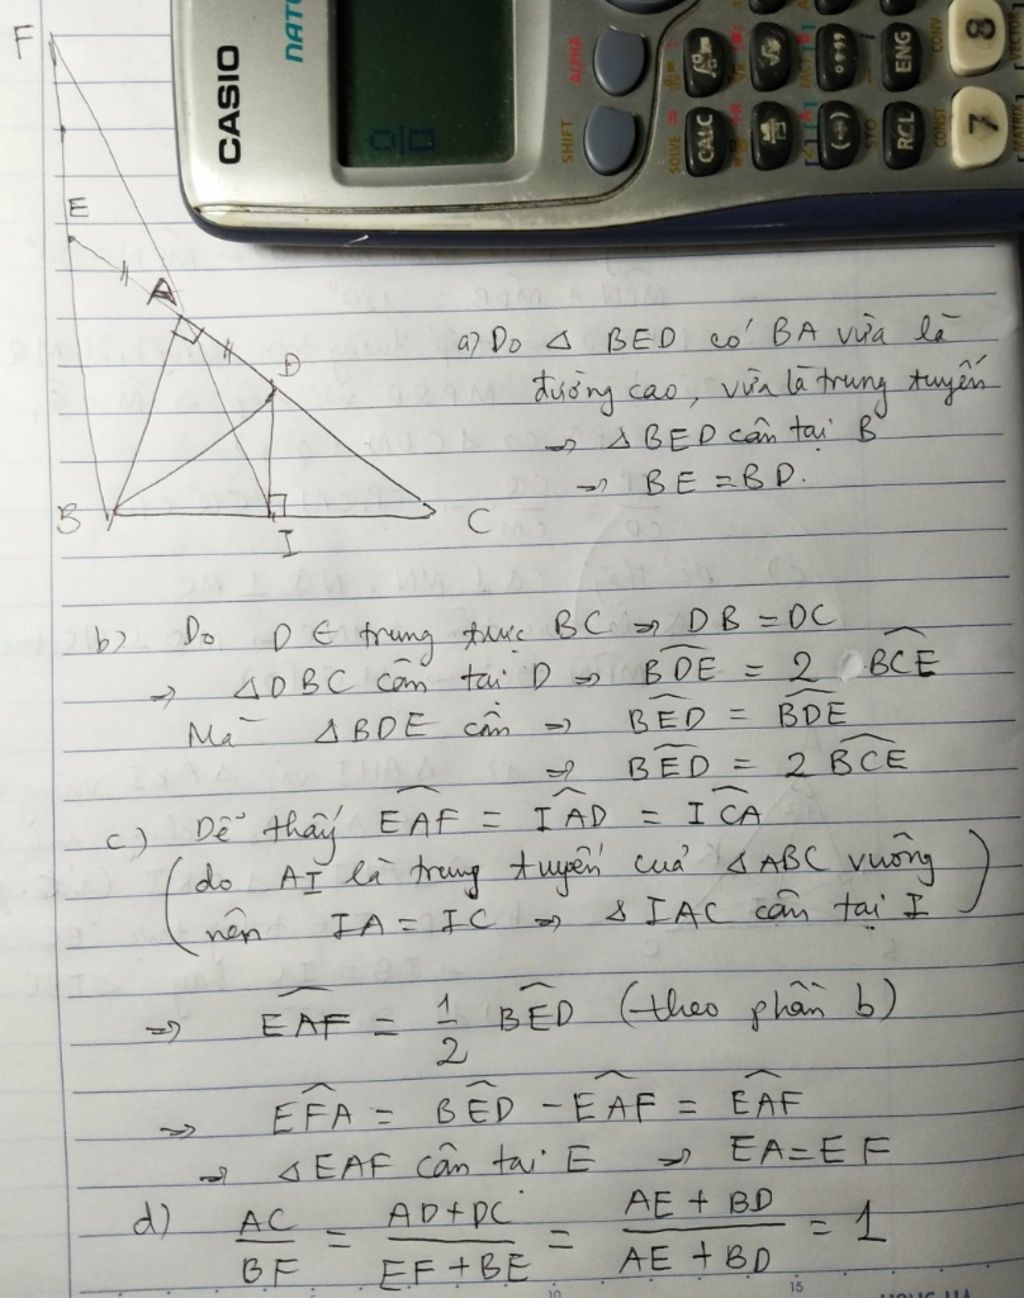 F
CASIO
NATU
ALPHA
SHIFT
SOLVE =
CALC
ENG
RCL
STO
CONST
CONV
8
7
E
A
D
B
I
C
a) Do Δ BED có BA vừa là
đường cao, vừa là trung tuyến
⇒ Δ BED cân tại B
⇒ BE = BD.
b) Do D ∈ trung trực BC ⇒ DB = DC
⇒ ΔDBC cân tại D ⇒ \widehat{BDE} = 2 \widehat{BCE}
Mà ΔBDE cân ⇒ \widehat{BED} = \widehat{BDE}
⇒ \widehat{BED} = 2 \widehat{BCE}
c) Dễ thấy \widehat{EAF} = \widehat{IAD} = \widehat{ICA}
(do AI là trung tuyến của ΔABC vuông
nên IA = IC ⇒ Δ IAC cân tại I)
⇒ \widehat{EAF} = \frac{1}{2} \widehat{BED} (theo phần b)
⇒ \widehat{EFA} = \widehat{BED} - \widehat{EAF} = \widehat{EAF}
⇒ ΔEAF cân tại E ⇒ EA = EF
d) \frac{AC}{BF} = \frac{AD+DC}{EF+BE} = \frac{AE+BD}{AE+BD} = 1
10
15